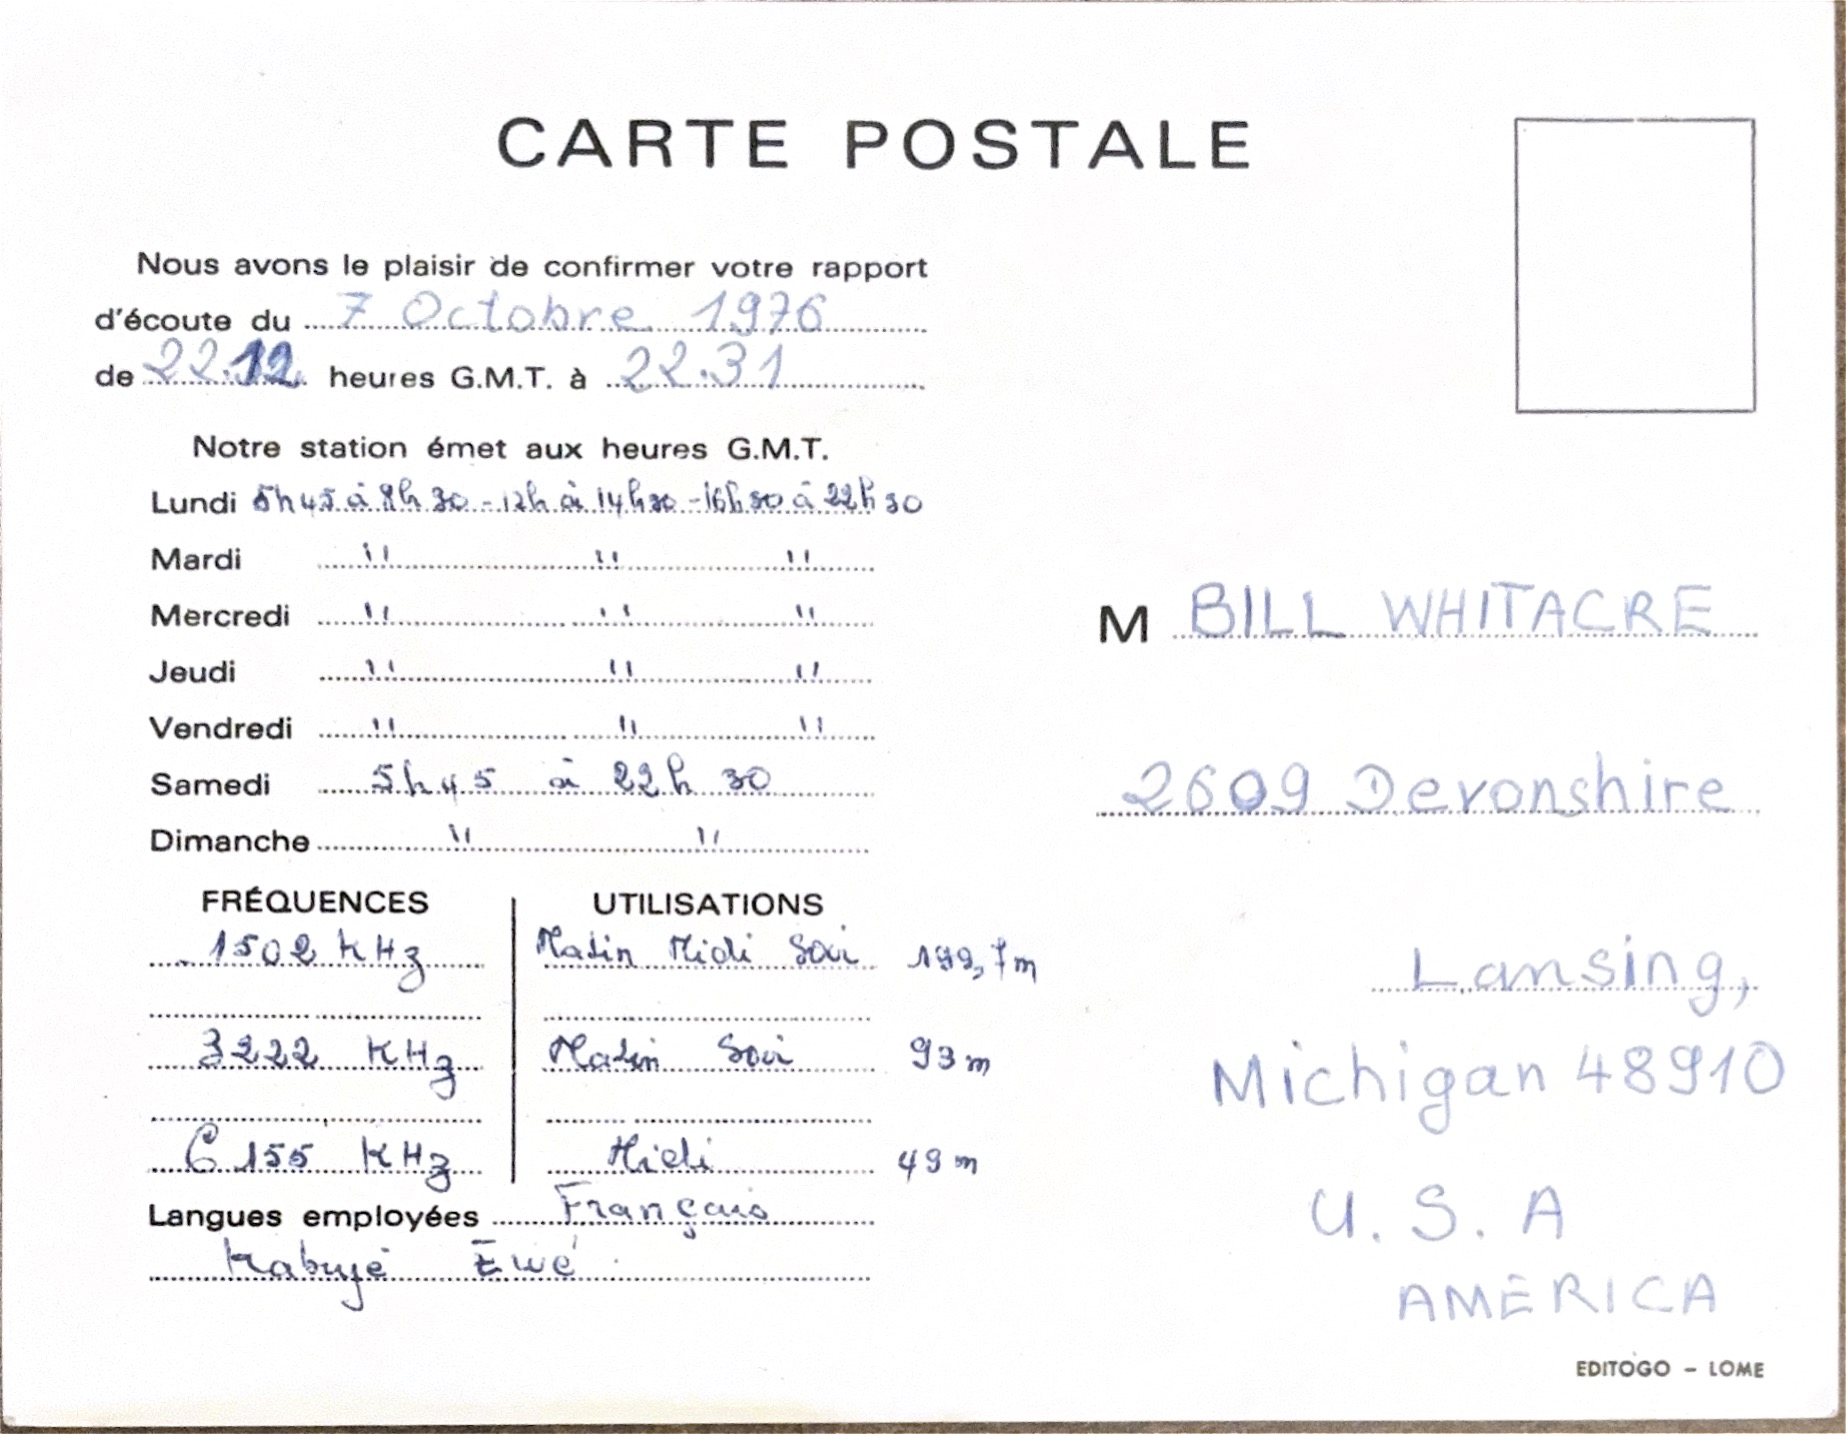 CARTE POSTALE
Nous avons le plaisir de confirmer votre rapport
d'écoute du 7 Octobre 1976
de 22.12 heures G.M.T. à 22.31
Notre station émet aux heures G.M.T.
Lundi 5h45 à 8h30 - 12h à 14h30 - 16h30 à 22h30
Mardi " " "
Mercredi " " "
Jeudi " " "
Vendredi " " "
Samedi 5h45 à 22h 30
Dimanche " "
FRÉQUENCES UTILISATIONS
1502 KHz Matin Midi Soir 199,7m
3222 KHz Matin Soir 93 m
6155 KHz Midi 49 m
Langues employées Français
Kabyè Ewé
M BILL WHITACRE
2609 Devonshire
Lansing,
Michigan 48910
U.S.A
AMERICA
EDITOGO - LOME